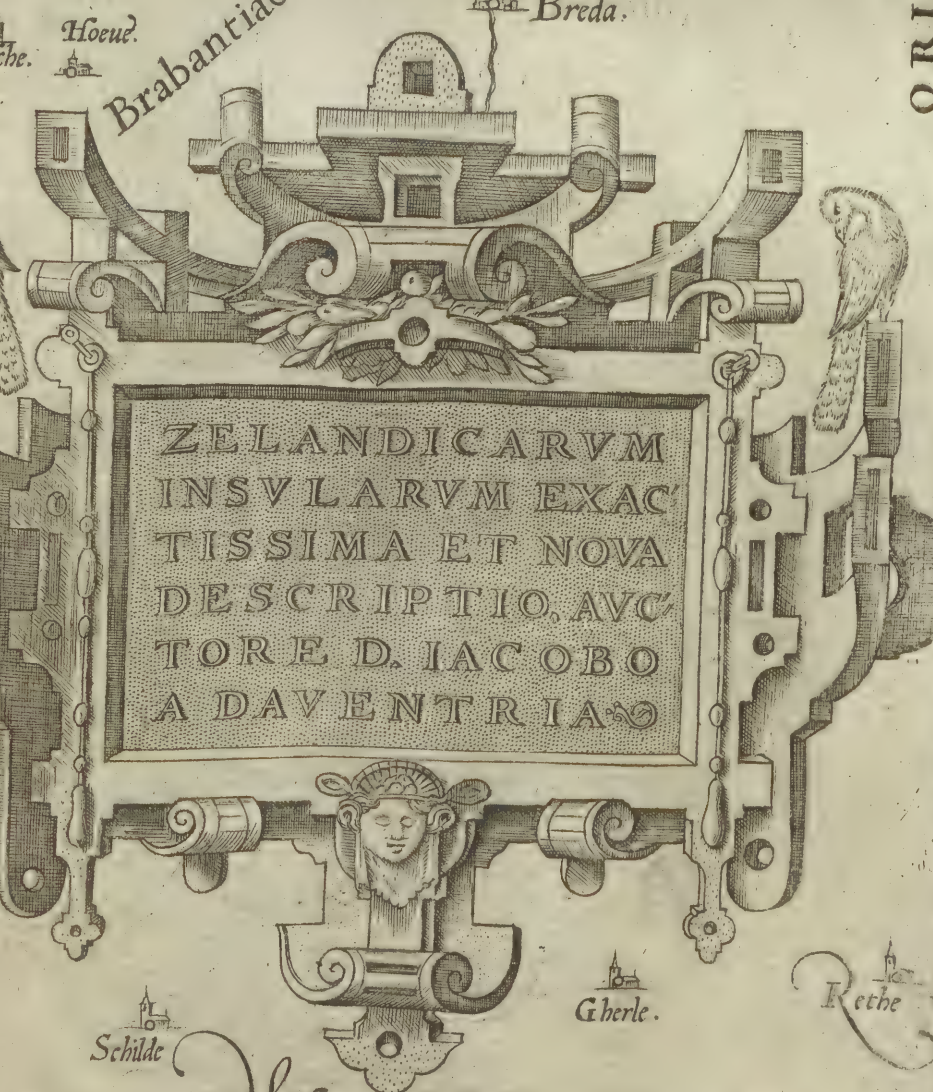 Breda.
Hoeue.
che.
Brabantiae
ORI
ZELANDICARVM
INSVLARVM EXAC
TISSIMA ET NOVA
DESCRIPTIO. AVC
TORE D. IACOBO
A DAVENTRIA
Gherle.
Rethe
Schilde